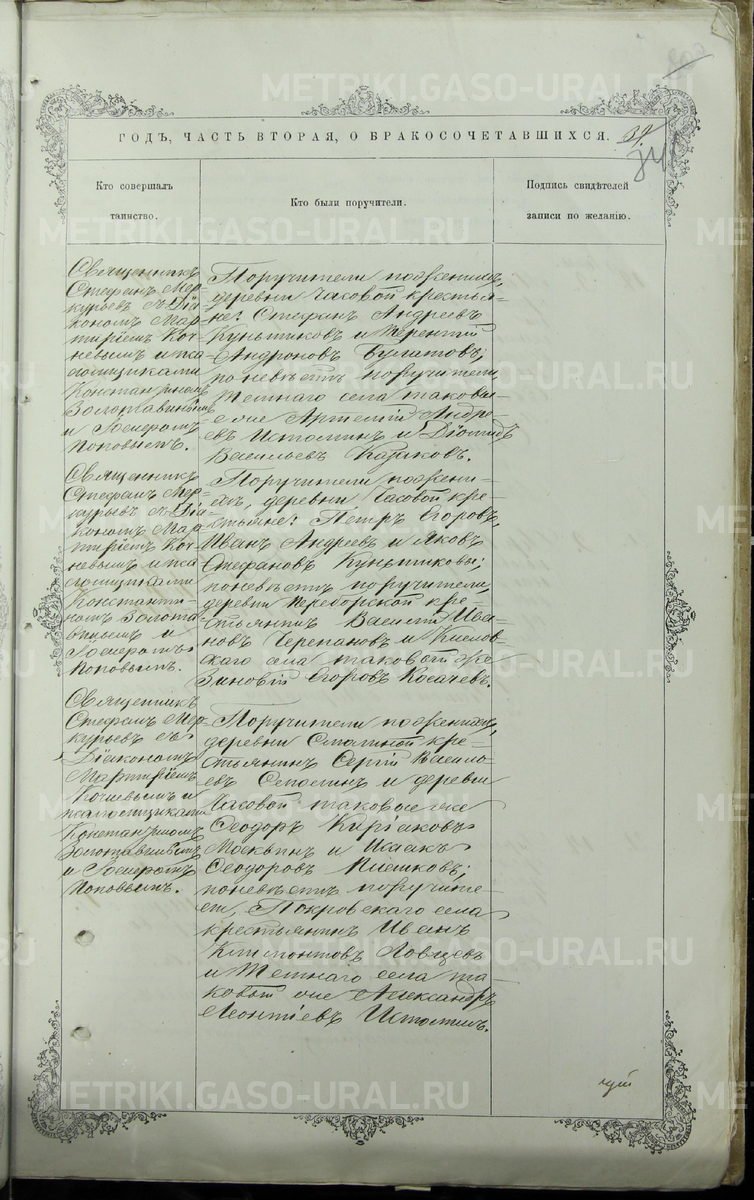 METRIKI.GASO-URAL.RU
ГОДЪ, ЧАСТЬ ВТОРАЯ, О БРАКОСОЧЕТАВШИХСЯ.
39.
Кто совершалъ таинство.
Кто были поручители.
Подпись свидѣтелей записи по желанію.
Священникъ
Стефанъ Мер-
курьевъ съ Діа-
кономъ Мар-
тиріемъ Коч-
невымъ и пса-
ломщиками
Константиномъ
Золотавинымъ
и
Поповымъ.
Поручители по женихѣ,
деревни Часовой крестья-
не: Стефанъ Андреевъ
Куньщиковъ и Терентій
Андроновъ
по невѣстѣ поручители,
Темнаго села таковы-
е же Артемій Андре-
евъ Истоминъ и Діомидъ
Васильевъ Казаковъ.
Священникъ
Стефанъ Мер-
курьевъ съ Діа-
кономъ Мар-
тиріемъ Коч-
невымъ и пса-
ломщиками
Константи-
номъ Золота-
винымъ и
Поповымъ.
Поручители по жени-
хѣ, деревни Часовой кре-
стьяне: Петръ Егоровъ,
Иванъ Андреевъ и Яковъ
Стефановъ Куньщиковы;
по невѣстѣ поручители,
деревни Переборской кре-
стьянинъ Василій Ива-
новъ Черепановъ и Кислов-
скаго села таковый же
Зиновій Егоровъ Косачевъ.
Священникъ
Стефанъ Мер-
курьевъ съ
Діакономъ
Мартиріемъ
Кочневымъ и
псаломщиками
Константиномъ
Золотавинымъ
и
Поповымъ.
Поручители по женихѣ,
деревни кре-
стьянинъ Сергій Василь-
евъ и деревни
Часовой таковые же
Ѳеодоръ Киріаковъ
Москвинъ и Исаакъ
Ѳеодоровъ
по невѣстѣ поручите-
ли, Покровскаго села
крестьянинъ Иванъ
Климонтовъ
и Темнаго села та-
ковый же Александръ
Леонтіевъ Истоминъ.